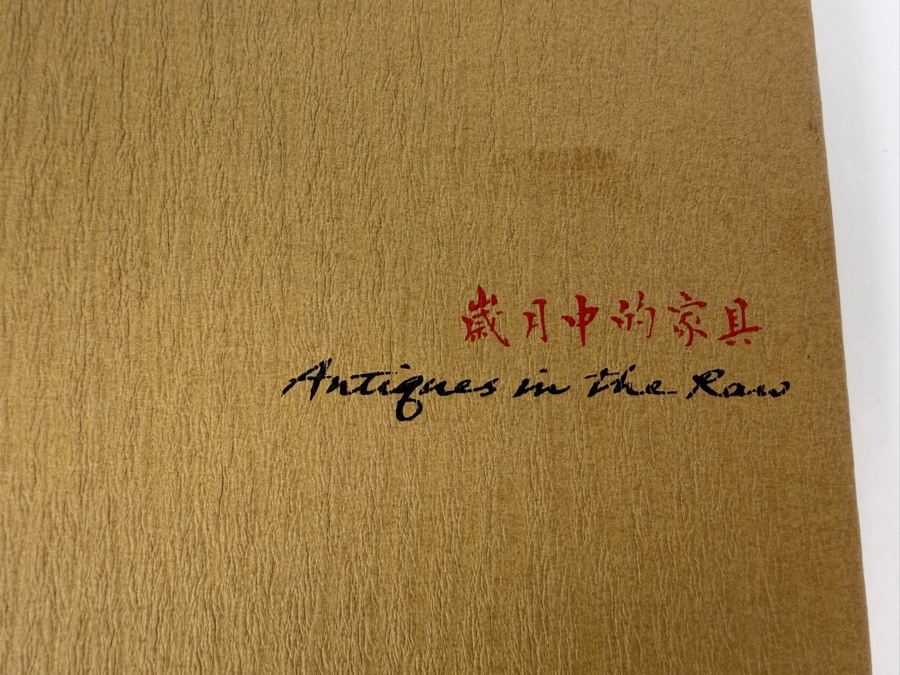 歲月中的家具
Antiques in the Raw